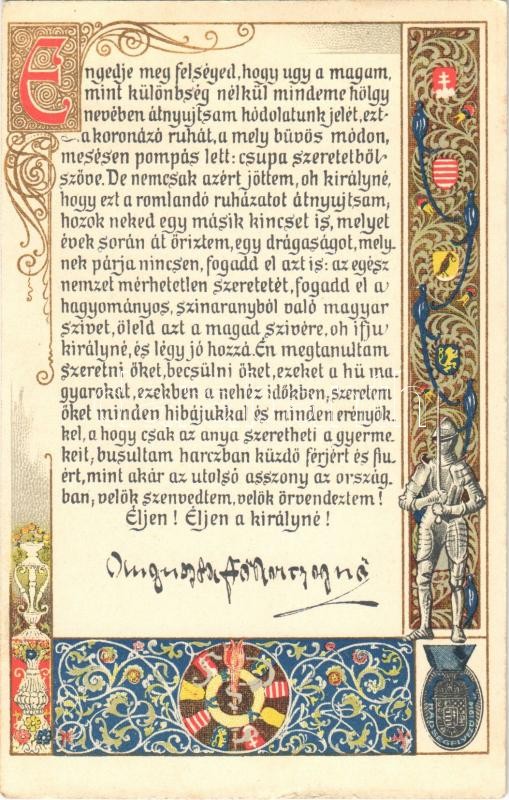 Engedje meg felséged, hogy ugy a magam,
mint különbség nélkül mindeme hölgy
nevében átnyujtsam hódolatunk jelét, ezt
a koronázó ruhát, a mely büvös módon,
mesésen pompás lett: csupa szeretetből
szőve. De nemcsak azért jöttem, oh királyné,
hogy ezt a romlandó ruházatot átnyujtsam;
hozok neked egy másik kincset is, melyet
évek során át őriztem, egy drágaságot, mely-
nek párja nincsen, fogadd el azt is: az egész
nemzet mérhetetlen szeretetét, fogadd el a
hagyományos, szinaranyból való magyar
szivet, öleld azt a magad szivére, oh ifju
királyné, és légy jó hozzá. Én megtanultam
szeretni őket, becsülni őket, ezeket a hü ma-
gyarokat, ezekben a nehéz időkben; szeretem
őket minden hibájukkal és minden erényök-
kel, a hogy csak az anya szeretheti a gyerme-
keit; busultam harczban küzdő férjért és fiu
ért, mint akár az utolsó asszony az ország-
ban; velök szenvedtem, velök örvendeztem!
Éljen! Éljen a királyné!
Auguszta Főherczegnő